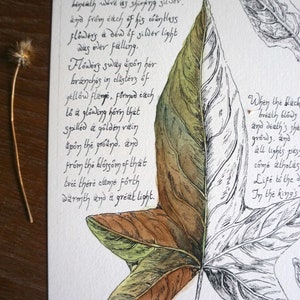 beneath were as shining silver,
and from each of his countless
flowers a dew of silver light
was ever falling.
Flowers swung upon her
branches in clusters of
yellow flame, formed each
to a glowing horn that
spilled a golden rain
upon the ground, and
from the blossom of that
tree there came forth
warmth and a great light.
When the black
breath blows
and death's sha
grows, and
all lights pass
come athelas
Life to the
In the king